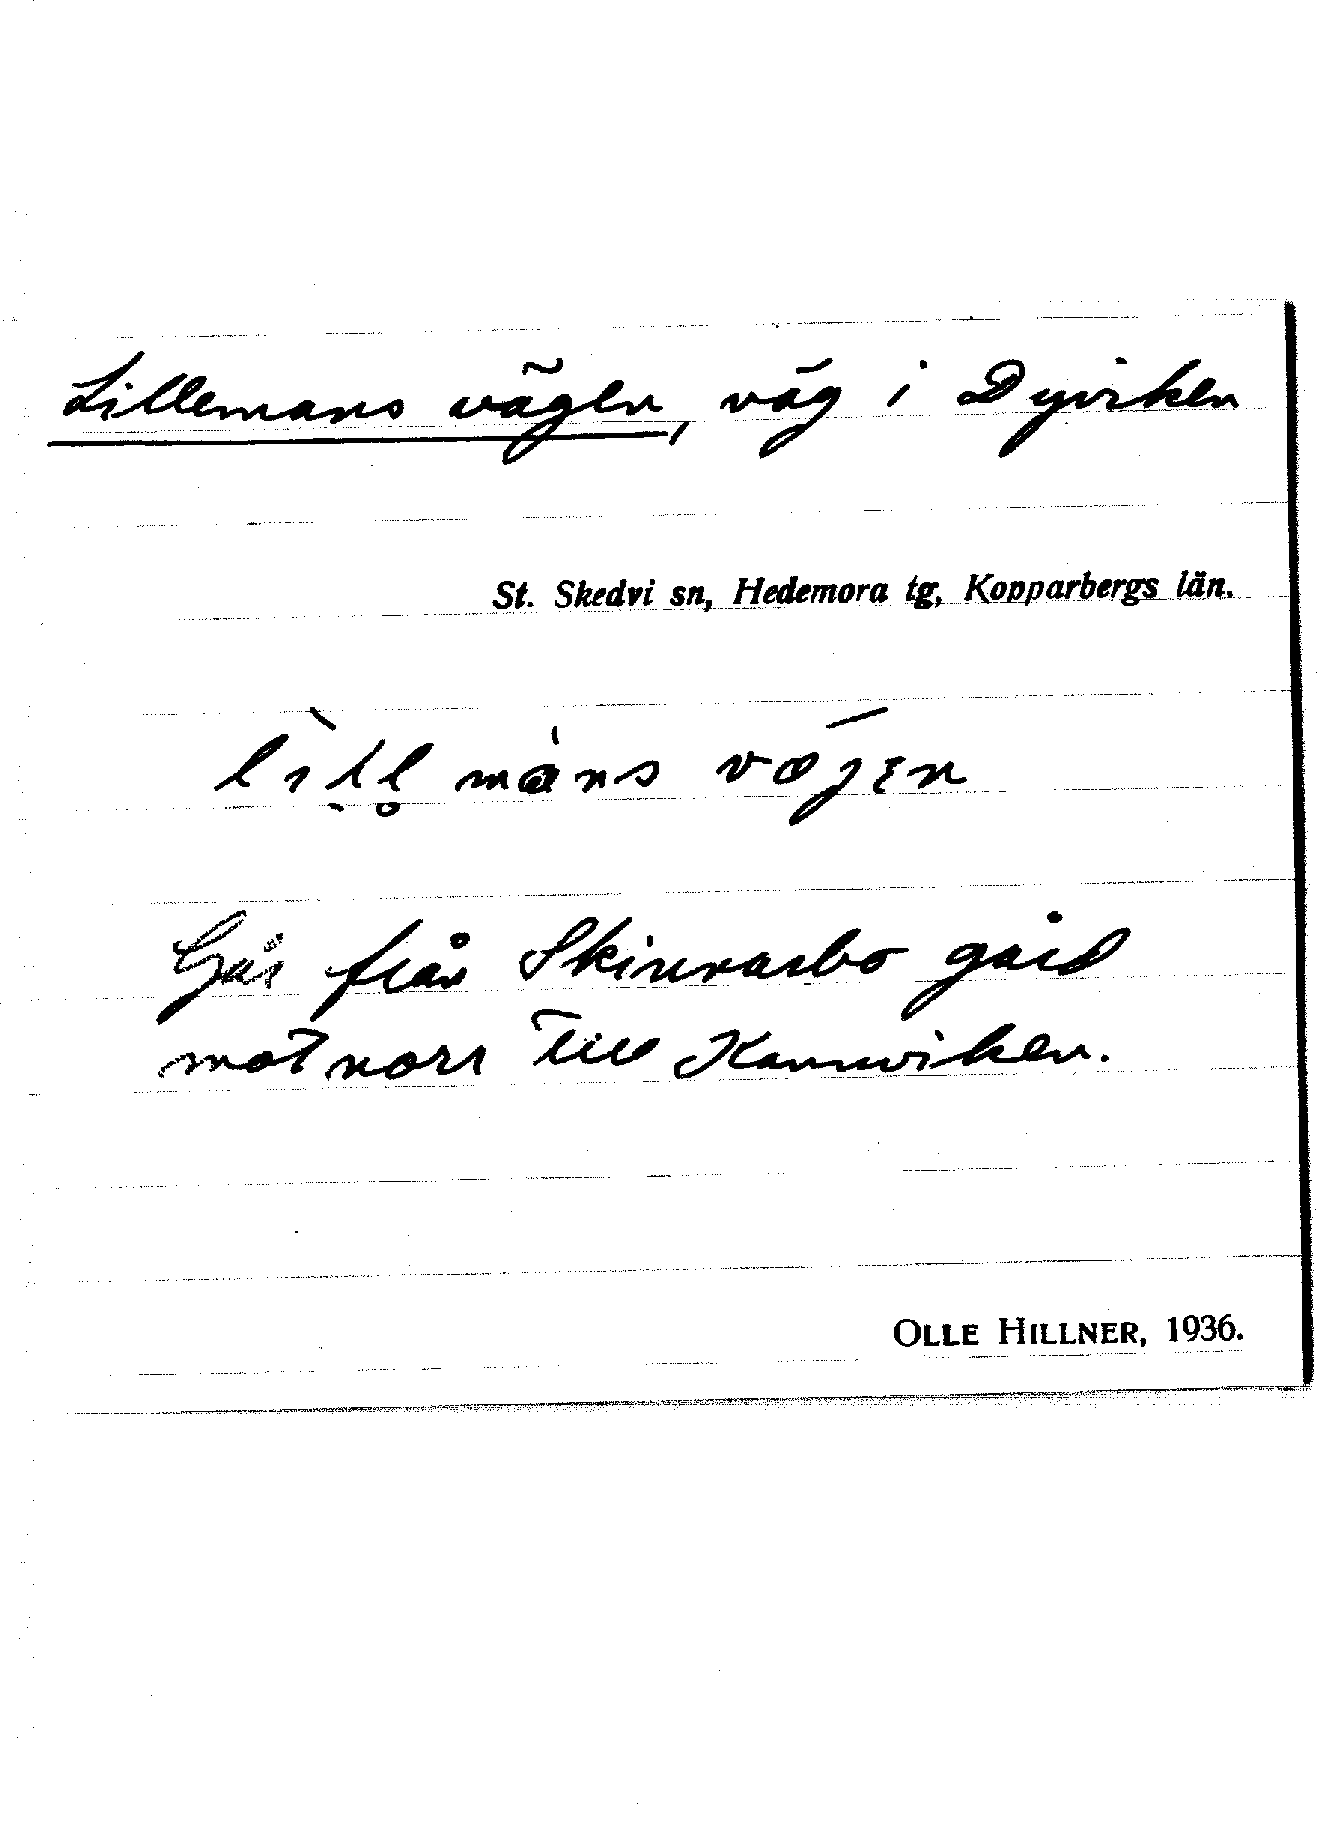 Lillemans vägen, väg i Dyviken
St. Skedvi sn, Hedemora tg, Kopparbergs län.
lìll màns vægen
Går från Skinnarbo gård
mot norr till Kamviken.
OLLE HILLNER, 1936.